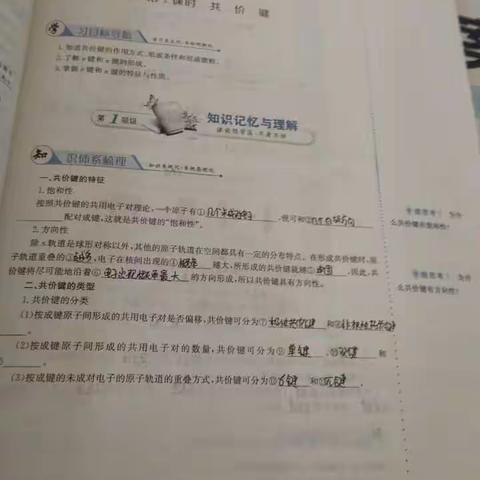 课时 共 价 键
学 习目标导航
1.知道共价键的作用方式、形成条件和形成微粒。
2.了解σ键和π键的形成。
3.掌握σ键和π键的特征与性质。
第1层级 知识记忆与理解
知 识体系梳理
一、共价键的特征
1.饱和性
按照共价键的共用电子对理论,一个原子有① 几个未成对电子 ,便可和②
配对成键,这就是共价键的“饱和性”。
2.方向性
除s轨道是球形对称以外,其他的原子轨道在空间都具有一定的分布特点。在形成共价键时,原
子轨道重叠的③ 越多 ,电子在核间出现的④ 概率 越大,所形成的共价键就越⑤ 牢固 ,因此,共
价键将尽可能地沿着⑥ 电子出现概率最大 的方向形成,所以共价键具有方向性。
二、共价键的类型
1.共价键的分类
(1)按成键原子间形成的共用电子对是否偏移,共价键可分为⑦ 极性共价键 和⑧ 非极性共价键
。
(2)按成键原子间形成的共用电子对的数量,共价键可分为⑨ 单键 、⑩ 双键 和
。
(3)按成键的未成对电子的原子轨道的重叠方式,共价键可分为⑫ σ键 和⑬ π键 。
为什
么共价键有饱和性?
为什
么共价键有方向性?